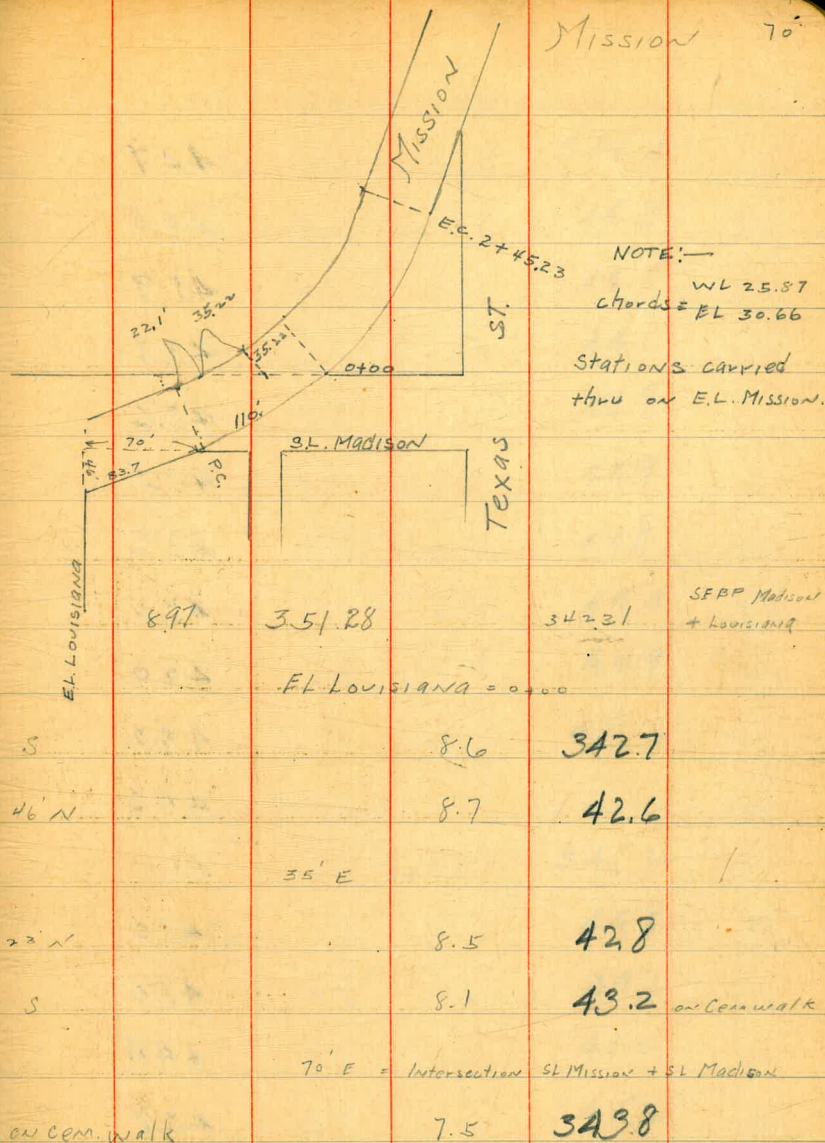 Mission 70'
Mission
E.C. 2 + 45.23
NOTE:—
chords = WL 25.87
EL 30.66
Stations carried
thru on E.L. Mission.
ST.
Texas
22.1'
35.22
35.22
0+00
110'
70'
46'
83.7
P.C.
S.L. Madison
E.L. Louisiana
8.97 351.28 342.31 SEBP Madison
+ Louisiana
EL Louisiana = 0+00
S 8.6 342.7
46' N 8.7 42.6
35' E
23' N 8.5 42.8
S 8.1 43.2 on Cem walk
70' E = Intersection SL Mission + SL Madison
on cem. walk 7.5 343.8